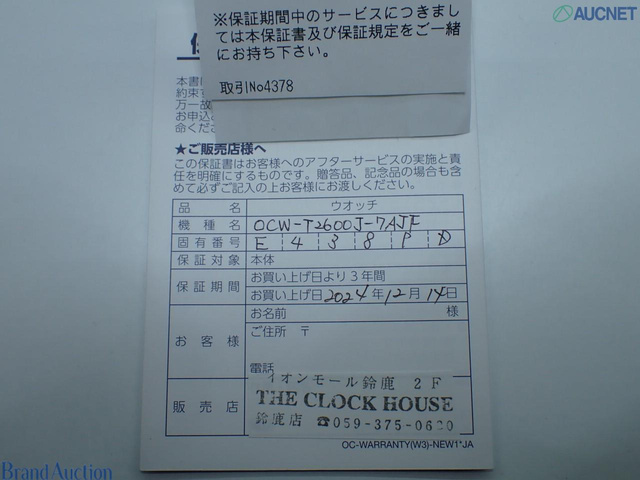 ※保証期間中のサービスにつきまし
ては本保証書及び保証規定をご一緒
にお持ち下さい。
取引No4378
AUCNET
本書に
約束す
万一故
お申込
命くださ
★ご販売店様へ
この保証書はお客様へのアフターサービスの実施と責
任を明確にするものです。贈答品、記念品の場合も含
めて必ずご記入の上お客様にお渡しください。
品名 ウオッチ
機種名 OCW-T2600J-7AJF
固有番号 E 4 3 8 P D
保証対象 本体
保証期間 お買い上げ日より3年間
お買い上げ日 2024年12月14日
お客様 お名前 様
ご住所 〒
電話
販売店 イオンモール鈴鹿 2F
THE CLOCK HOUSE
鈴鹿店 ☎059-375-0620
OC-WARRANTY(W3)-NEW1*JA
Brand Auction